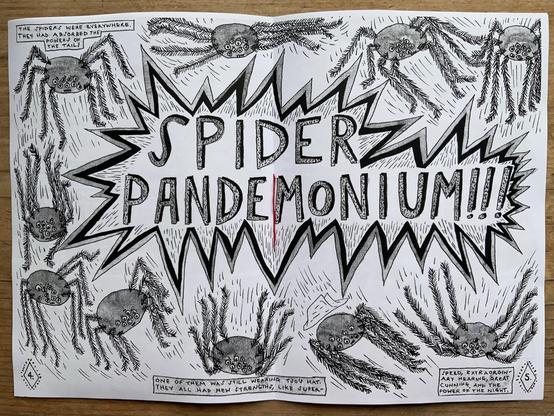 THE SPIDERS WERE EVERYWHERE.
THEY HAD ABSORBED THE
POWERS OF
THE TAIL!
SPIDER
PANDEMONIUM!!!
ONE OF THEM WAS STILL WEARING HAT.
THEY ALL HAD NEW STRENGTHS, LIKE SUPER-
SPEED, EXTRAORDIN-
ARY HEARING, GREAT
CUNNING AND THE
POWER OF THE NIGHT.
4.
5.